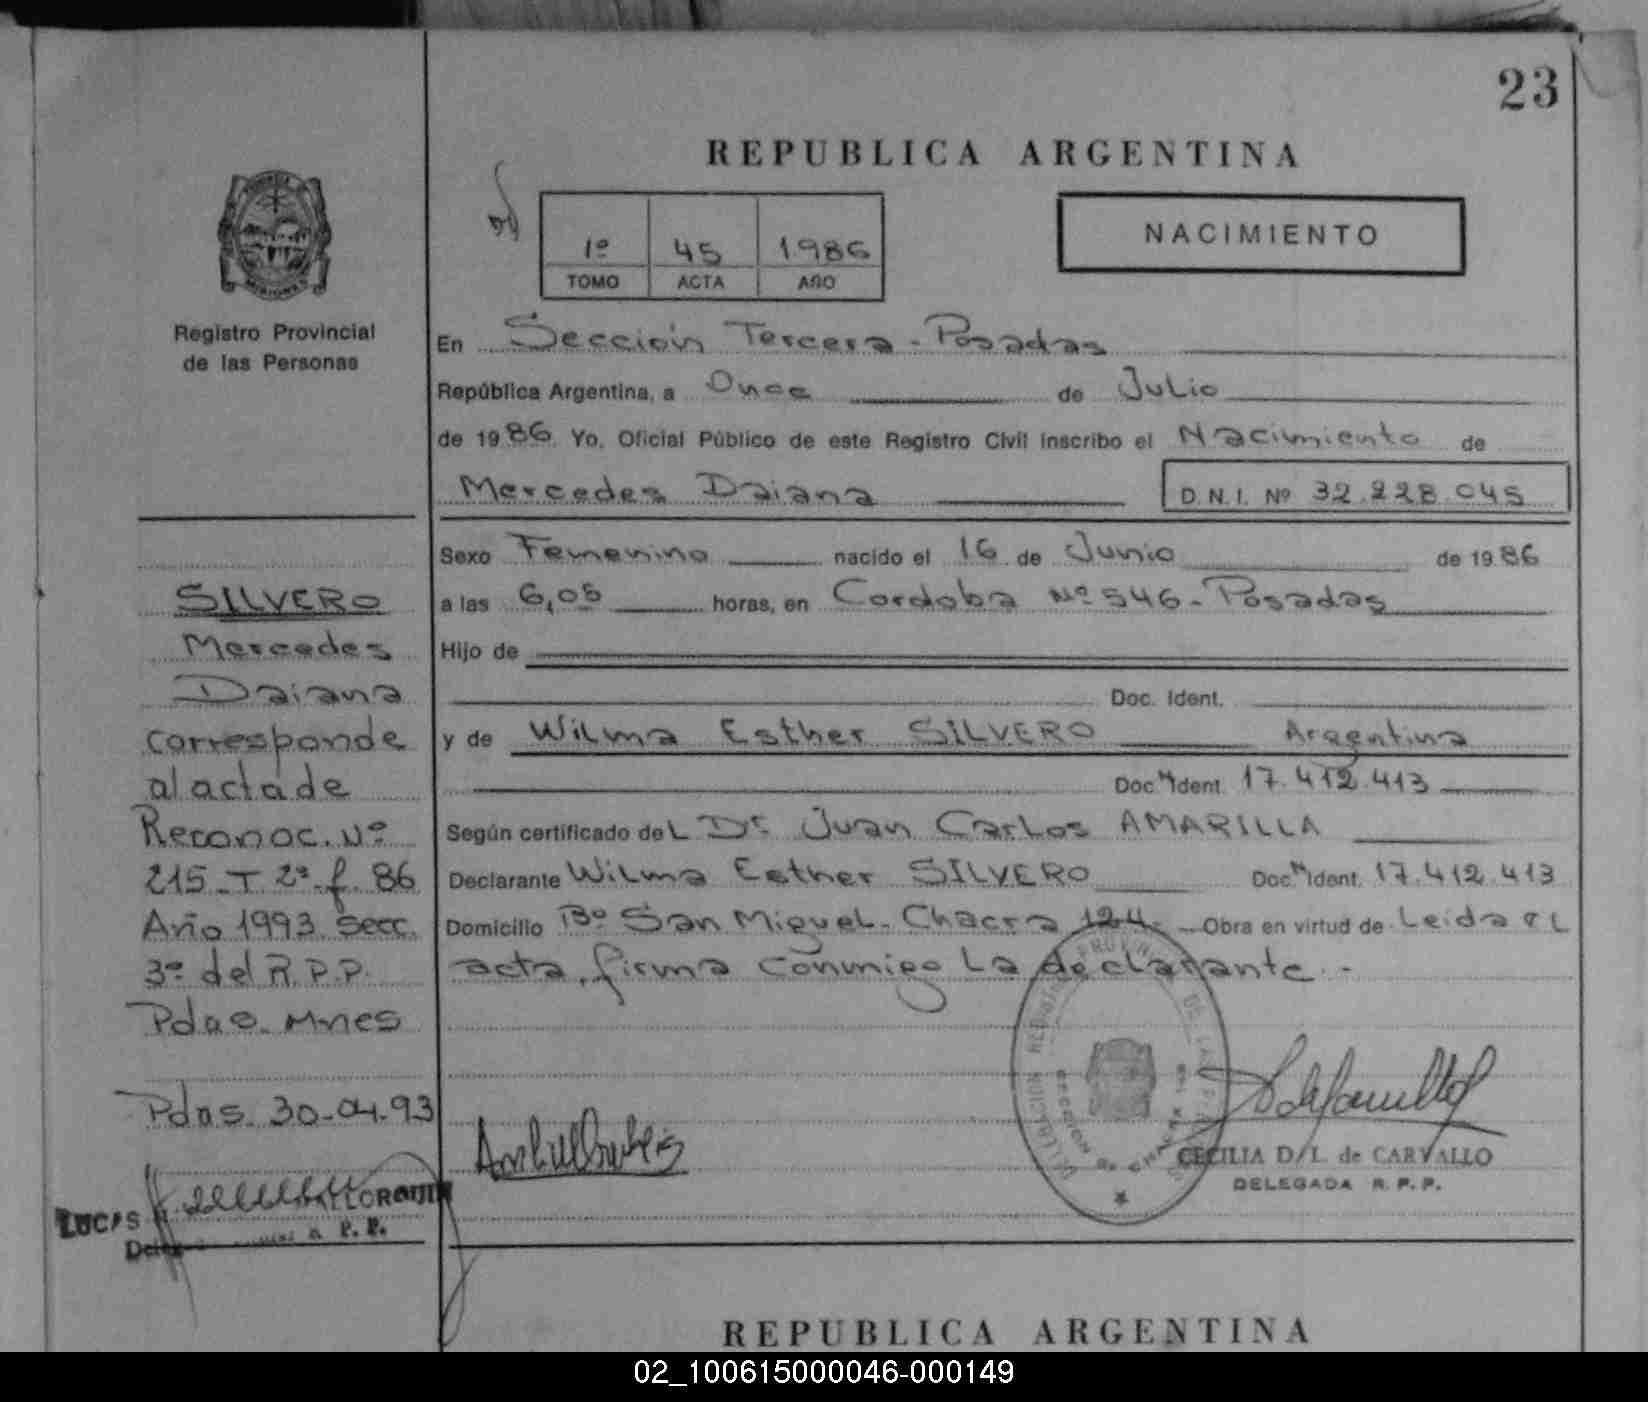 23
REPUBLICA ARGENTINA
1º 45 1.986
TOMO ACTA AÑO
NACIMIENTO
MISIONES
Registro Provincial
de las Personas
En Sección Tercera - Posadas
República Argentina, a Once de Julio
de 1986. Yo, Oficial Público de este Registro Civil inscribo el Nacimiento de
Mercedes Daiana D.N.I. Nº 32.228.045
Sexo Femenino nacido el 16 de Junio de 1986
a las 6,05 horas, en Cordoba Nº 546 - Posadas
Hijo de
Doc. Ident.
y de Wilma Esther SILVERO Argentina
Doc. Ident. 17.412.413
Según certificado del Dr Juan Carlos AMARILLA
Declarante Wilma Esther SILVERO Doc. Ident. 17.412.413
Domicilio Bº San Miguel - Chacra 124. - Obra en virtud de Leida el
acta, firma conmigo la declarante. -
SILVERO
Mercedes
Daiana
corresponde
al acta de
Reconoc. Nº
215 - T 2º f. 86
Año 1993 Secc.
3º del R.P.P.
Pdas. Mnes
Pdas. 30-04-93
LUCAS
P. P.
CECILIA D/L de CARVALLO
DELEGADA R.P.P.
REPUBLICA ARGENTINA
02_100615000046-000149